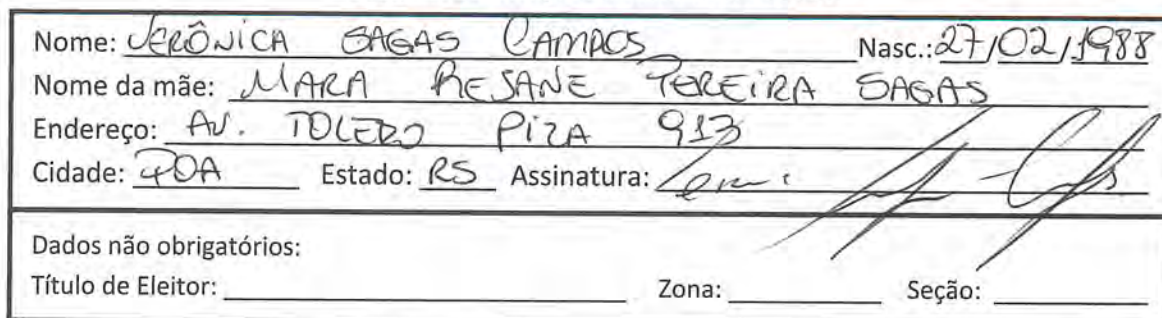 Nome: VERÔNICA SAGAS CAMPOS Nasc.: 27/02/1988
Nome da mãe: MARA RESANE PEREIRA SAGAS
Endereço: AV. TOLEDO PIZA 913
Cidade: POA Estado: RS Assinatura:
Dados não obrigatórios:
Título de Eleitor: Zona: Seção: